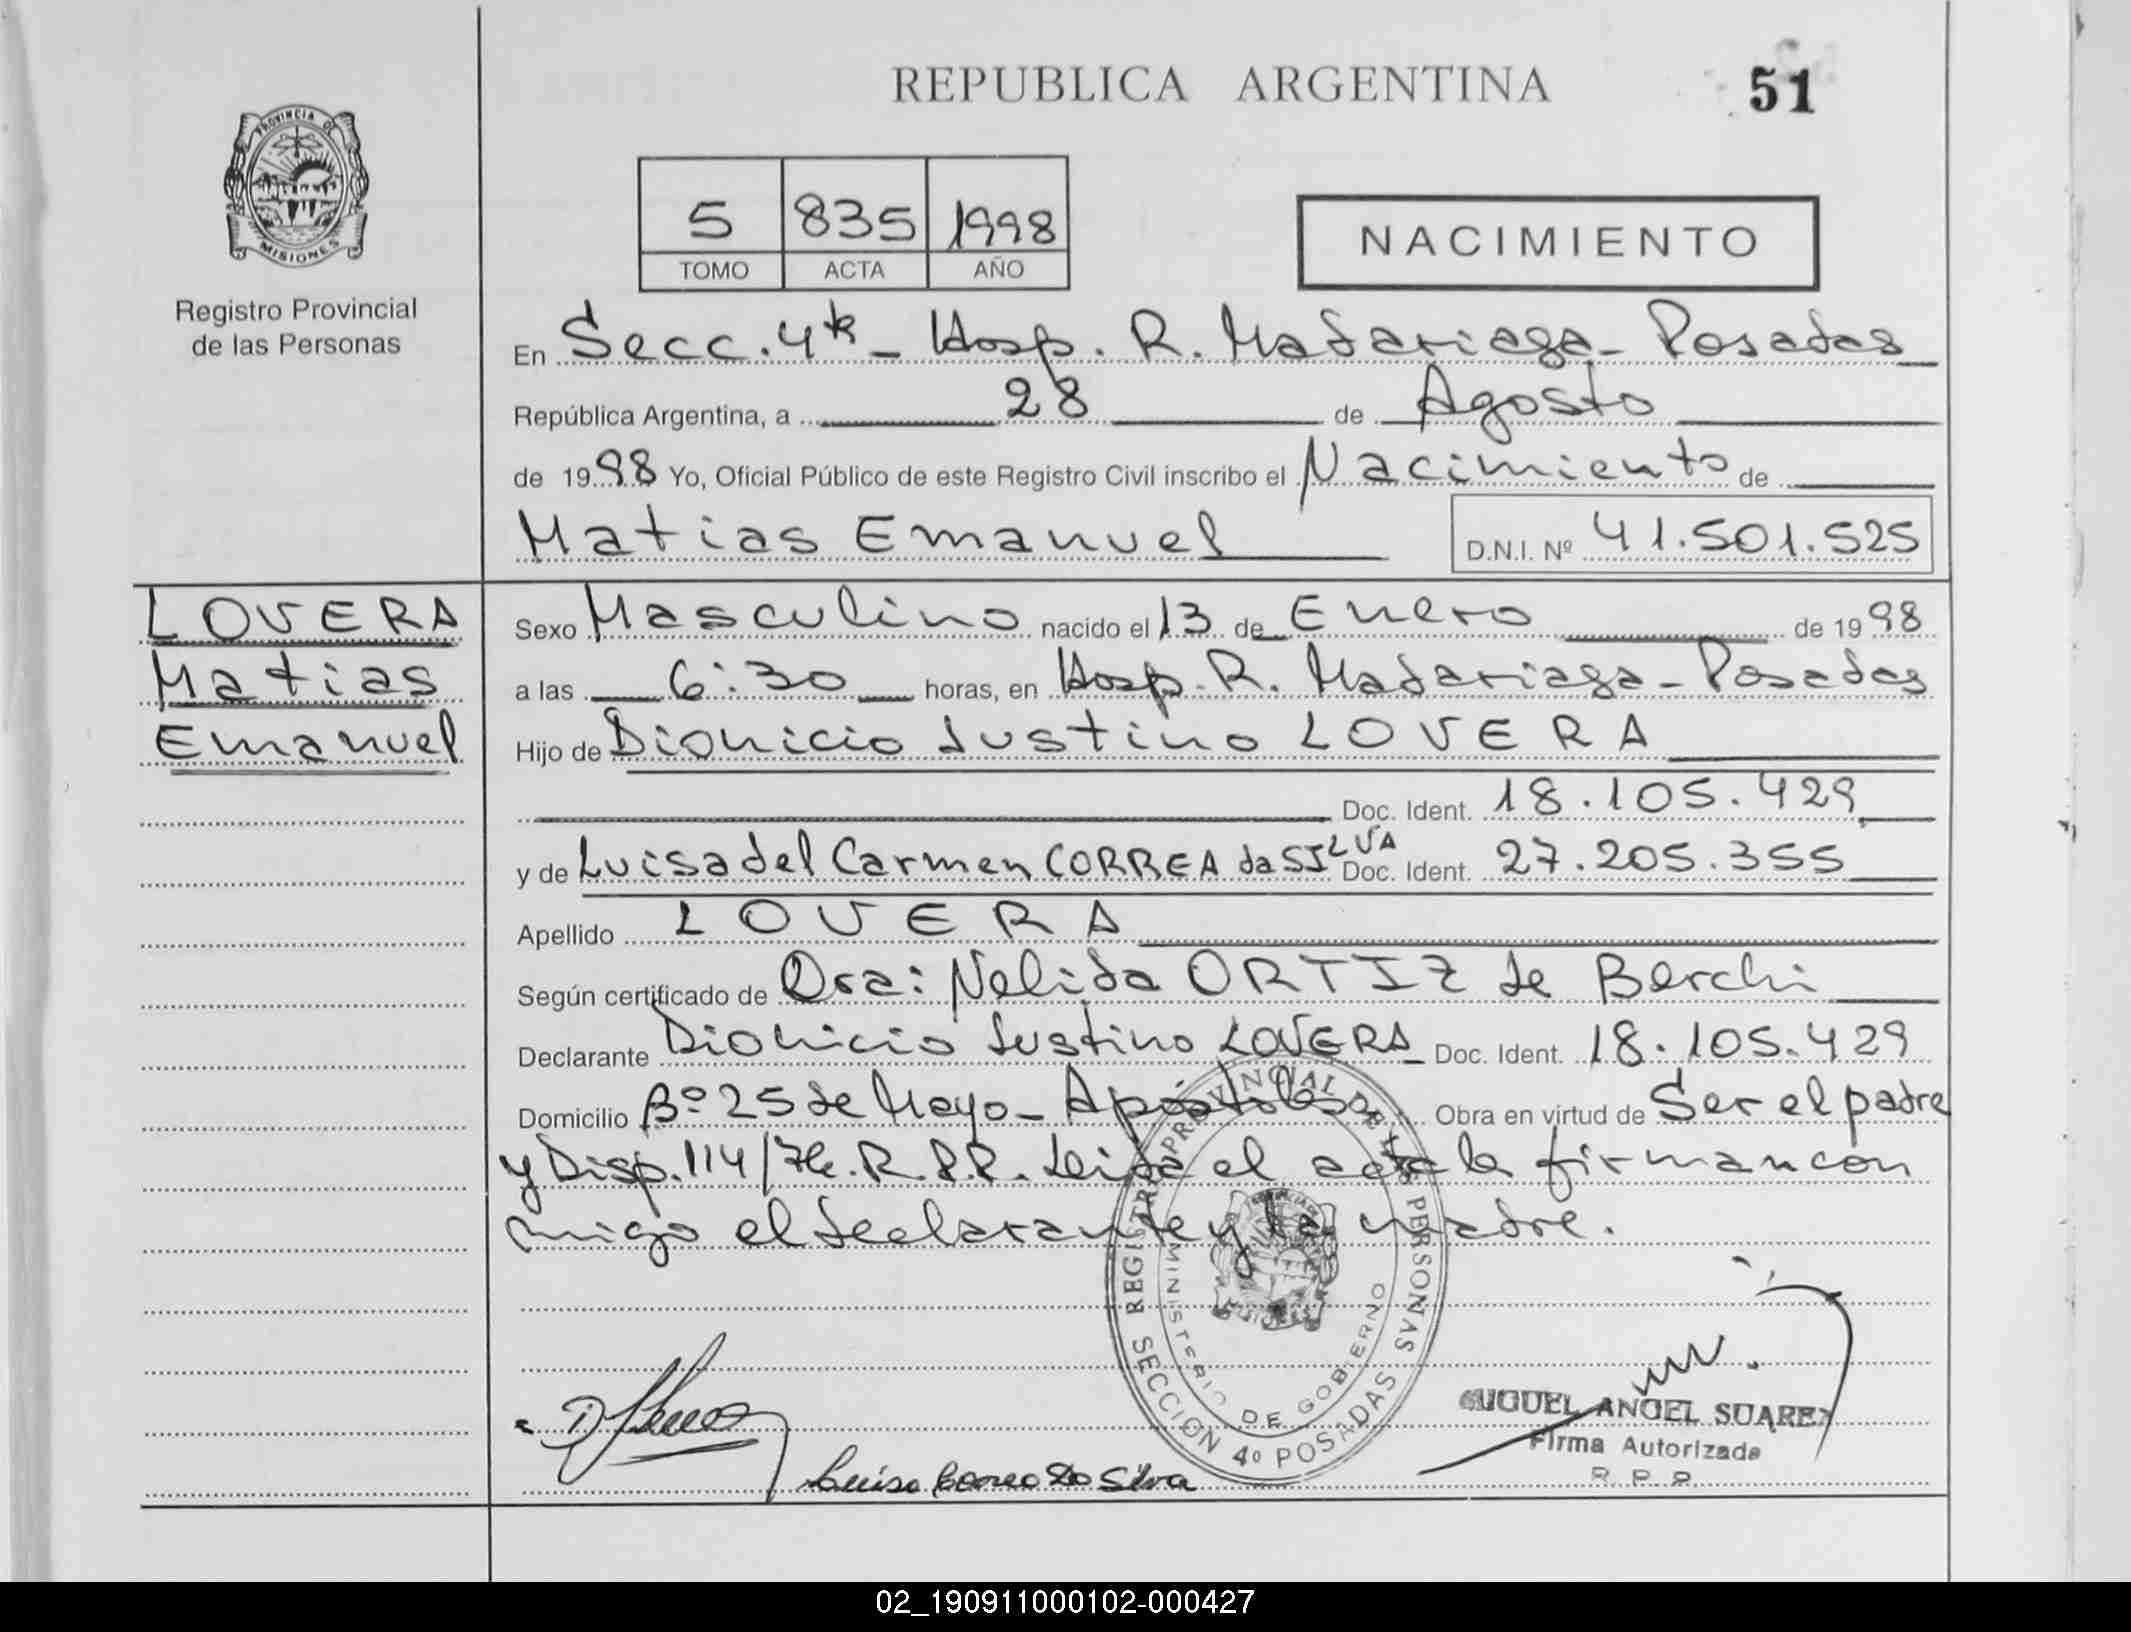 REPUBLICA ARGENTINA
51
PROVINCIA DE
MISIONES
Registro Provincial
de las Personas
5 835 1998
TOMO ACTA AÑO
NACIMIENTO
En Secc. 4ta - Hosp. R. Madariaga - Posadas
República Argentina, a 28 de Agosto
de 1998 Yo, Oficial Público de este Registro Civil inscribo el Nacimiento de
Matias Emanuel D.N.I. Nº 41.501.525
LOVERA
Matias
Emanuel
Sexo Masculino nacido el 13 de Enero de 1998
a las 6:30 horas, en Hosp. R. Madariaga - Posadas
Hijo de Dionicio Justino LOVERA
Doc. Ident. 18.105.429
y de Luisa del Carmen CORREA da SILVA Doc. Ident. 27.205.355
Apellido LOVERA
Según certificado de Dra: Nelida ORTIZ de Berchi
Declarante Dionicio Justino LOVERA Doc. Ident. 18.105.429
Domicilio Bº 25 de Mayo - Apóstoles Obra en virtud de Ser el padre
y Disp. 114/ R.P.P. Leida el acta la firman con
migo el declarante y la madre.
REGISTRO PROVINCIAL DE LAS PERSONAS
MINISTERIO DE GOBIERNO
SECCION 4º POSADAS
Luisa Correa Da Silva
MIGUEL ANGEL SUAREZ
Firma Autorizada
R. P. P.
02_190911000102-000427